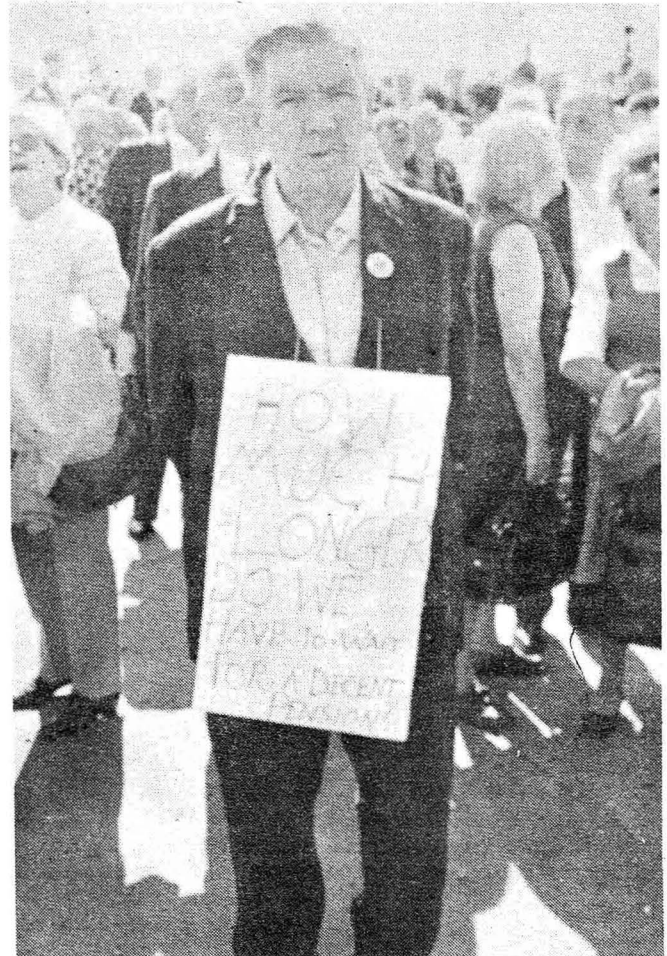 HOW
MUCH
LONGER
DO WE
HAVE TO WAIT
FOR A DECENT
PENSIONS